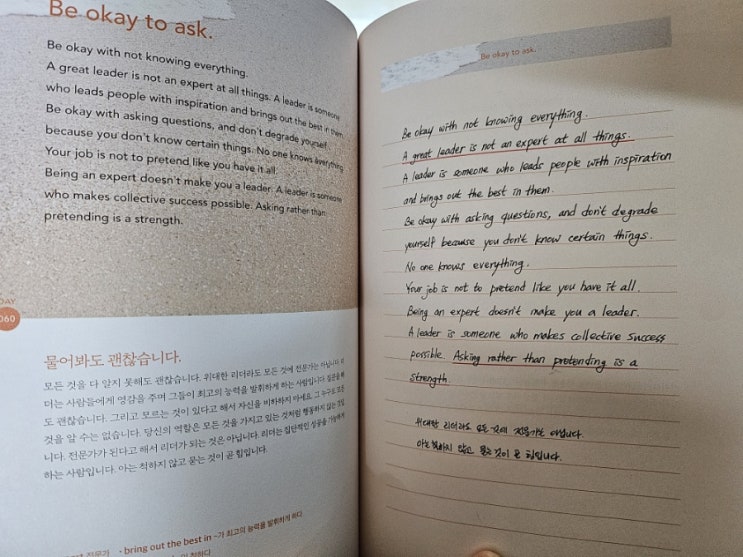 Be okay to ask.
Be okay with not knowing everything.
A great leader is not an expert at all things. A leader is someone
who leads people with inspiration and brings out the best in them.
Be okay with asking questions, and don't degrade yourself
because you don't know certain things. No one knows everything.
Your job is not to pretend like you have it all.
Being an expert doesn't make you a leader. A leader is someone
who makes collective success possible. Asking rather than
pretending is a strength.
DAY
060
물어봐도 괜찮습니다.
모든 것을 다 알지 못해도 괜찮습니다. 위대한 리더라도 모든 것에 전문가는 아닙니다. 리
더는 사람들에게 영감을 주며 그들이 최고의 능력을 발휘하게 하는 사람입니다. 질문을 해
도 괜찮습니다. 그리고 모르는 것이 있다고 해서 자신을 비하하지 마세요. 그 누구도 모든
것을 알 수는 없습니다. 당신의 역할은 모든 것을 가지고 있는 것처럼 행동하지 않는 것입
니다. 전문가가 된다고 해서 리더가 되는 것은 아닙니다. 리더는 집단적인 성공을 가능하게
하는 사람입니다. 아는 척하지 않고 묻는 것이 곧 힘입니다.
전문가 · bring out the best in ~가 최고의 능력을 발휘하게 하다
Be okay to ask.
Be okay with not knowing everything.
A great leader is not an expert at all things.
A leader is someone who leads people with inspiration
and brings out the best in them.
Be okay with asking questions, and don't degrade
yourself because you don't know certain things.
No one knows everything.
Your job is not to pretend like you have it all.
Being an expert doesn't make you a leader.
A leader is someone who makes collective success
possible. Asking rather than pretending is a
strength.
위대한 리더라도 모든 것에 전문가는 아닙니다.
아는 척하지 않고 묻는 것이 곧 힘입니다.